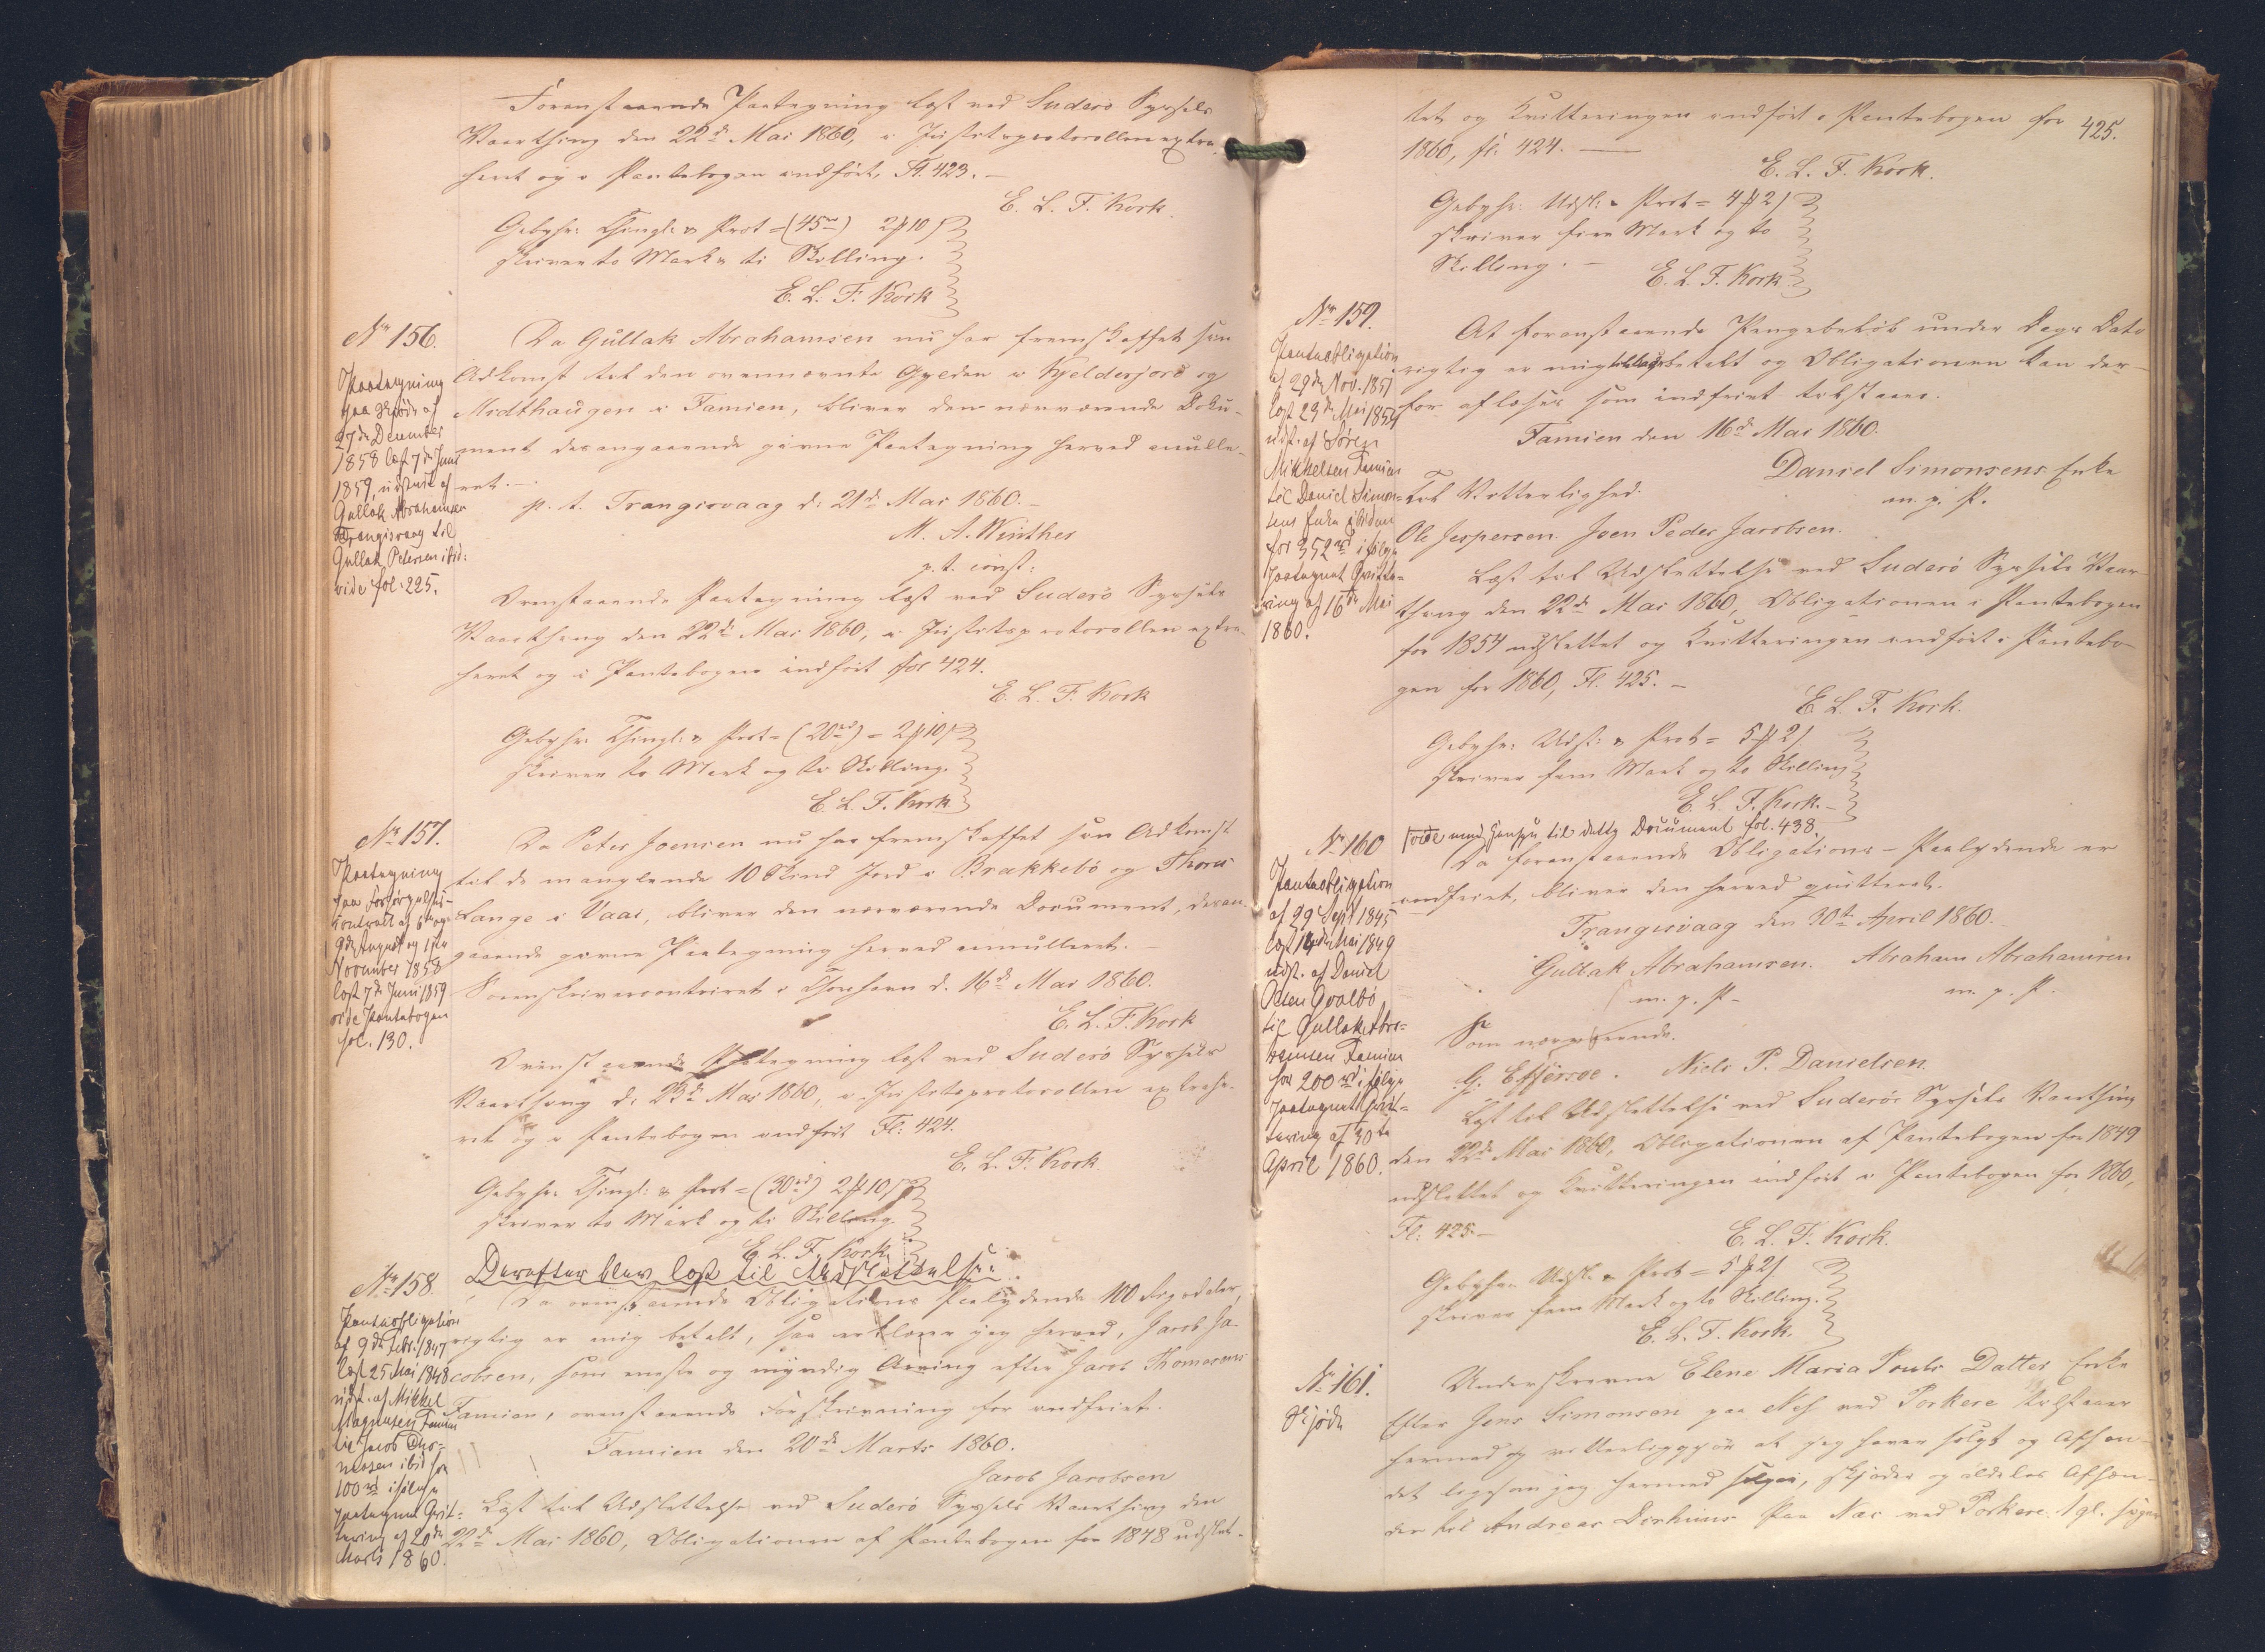 Foranstaaende Paategning læst ved Suderø Syssels
Vaarthing den 22de Mai 1860, i Justitsprotocollen extra-
heret og i Pantebogen indført, Fl. 423.
E. L. F. Kock.
Gebyhr: Thingl: & Prot = (45rd) 2 10
skriver to Mark & ti Skilling.
E. L. F. Kock
No 156.
Paategning
paa Skjøde af
27de December
1858 læst 7de Juni
1859, udstedt af
Gullak Abrahamsen
Trangisvaag til
Gullak Petersen ibid:
vide fol. 225.
Da Gullak Abrahamsen nu har fremskaffet sin
Adkomst til den ovennævnte Gylden i Kjeldesjord og
Midthaugen i Famien, bliver den nærværende Doku-
ment desangaaende givne Paategning herved annulle-
ret.
p. t. Trangisvaag d: 21de Mai 1860.
M. A. Winther
p. t. const:
Ovenstaaende Paategning læst ved Suderø Syssels
Vaarthing den 22de Mai 1860, i Justitsprotocollen extra-
heret og i Pantebogen indført fol 424.
E. L. F. Kock
Gebyhr: Thingl: & Prot = (20rd) = 2 10
skriver to Mark og ti Skilling.
E. L. F. Kock
No 157.
Paategning
paa Forsørgelses-
contract af 6te og
9de August og 1ste
November 1858
læst 7de Juni 1859
vide Pantebogen
fol. 130.
Da Peter Joensen nu har fremskaffet sin Adkomst
til de manglende 10 Skind Jord i Brekkebø og Thorus
Lange i Vaai, bliver den nærværende Document, desan-
gaaende givne Paategning herved annulleret.
Sorenskrivercontoiret i Thorshavn d. 16de Mai 1860.
E. L. F. Kock
Ovenstaaende Paategning læst ved Suderø Syssels
Vaarthing d. 23de Mai 1860, i Justitsprotocollen extrahe-
ret og i Pantebogen indført Fl: 424.
E. L. F. Kock.
Gebyhr: Thingl: & Prot = (30rd) 2 10
skriver to Mark og ti Skilling
E. L. F. Kock.
Derefter blev læst til Udslettelse:
No 158.
Panteobligation
af 9de Febr. 1847
læst 25 Mai 1848
udst. af Mikkel
Magnusen Famien
til Jacob Tho-
massen ibid for
100rd ifølge
paategnet Qvit-
tering af 20de
Marts 1860.
Da ovenstaaende Obligations Paalydende 100 Rigsdaler,
rigtig er mig betalt, saa erklærer jeg herved, Jacob Ja-
cobsen, som eneste og myndig Arving efter Jacob Thomasens
Famien, ovenstaaende Forskrivning for indfriet.
Famien den 20de Marts 1860.
Jacob Jacobsen
Læst til Udslettelse ved Suderø Syssels Vaarthing den
22de Mai 1860, Obligationen af Pantebogen for 1848 udslet-
425.
tet og Kvitteringen indført i Pantebogen for
1860, fl. 424.
E. L. F. Kock.
Gebyhr: Udsl: & Prot = 4 2
skriver fire Mark og to
Skilling.
E. L. F. Kock
No 159.
Panteobligation
af 29de Nov. 1851
læst 23de Mai 1854
udst. af Søren
Mikkelsen Famien
til Daniel Simon-
sens Enke ibidem
for 352rd ifølge
paategnet Qvitte-
ring af 16de Mai
1860.
At foranstaaende Pengebeløb under Dags Dato
rigtig er mig tilbagebetalt og Obligationen kan der-
for aflæses som indfriet tilstaaes.
Famien den 16de Mai 1860.
Daniel Simonsens Enke
m. p. P.
Til Vitterlighed.
Ole Jespersen. Joen Peder Jacobsen.
Læst til Udslettelse ved Suderø Syssels Vaar-
thing den 22de Mai 1860, Obligationen i Pantebogen
for 1854 udslettet og Kvitteringen indført i Pantebo-
gen for 1860, Fl. 425.
E. L. F. Kock.
Gebyhr: Udsl: & Prot = 5 2
skriver fem Mark og to Skilling
E. L. F. Kock.
No 160
vide med Hensyn til dette Document fol. 438.
Panteobligation
af 29 Sept 1845
læst 14de Mai 1849
udst. af Daniel
Olsen Qvalbø
til Gullak Abra-
hamsen Famien
for 200rd ifølge
paategnet Qvit-
tering af 30te
April 1860.
Da foranstaaende Obligations-Paalydende er
indfriet, bliver den herved quitteret.
Trangisvaag den 30te April 1860.
Gullak Abrahamsen. Abraham Abrahamsen
m. p. P. m. p. P.
Som nærværende.
G. Effersøe. Niels P. Danielsen.
Læst til Udslettelse ved Suderø Syssels Vaarthing
den 22de Mai 1860, Obligationen af Pantebogen for 1849
udslettet og Kvitteringen indført i Pantebogen for 1860,
Fl: 425.
E. L. F. Kock.
Gebyhr: Udsl: & Prot = 5 2
skriver fem Mark og to Skilling.
E. L. F. Kock.
No 161.
Skjøde
Underskrevne Elene Maria Pouls Datter Enke
Efter Jens Simonsen paa Nes ved Porkere tilstaaer
hermed og vitterliggjør at jeg haver solgt og Afhæn-
det ligesom jeg hermed sælger, skjøder og aldeles Afhæn-
der til Andreas Dirhuus Paa Næs ved Porkere 1 gl.